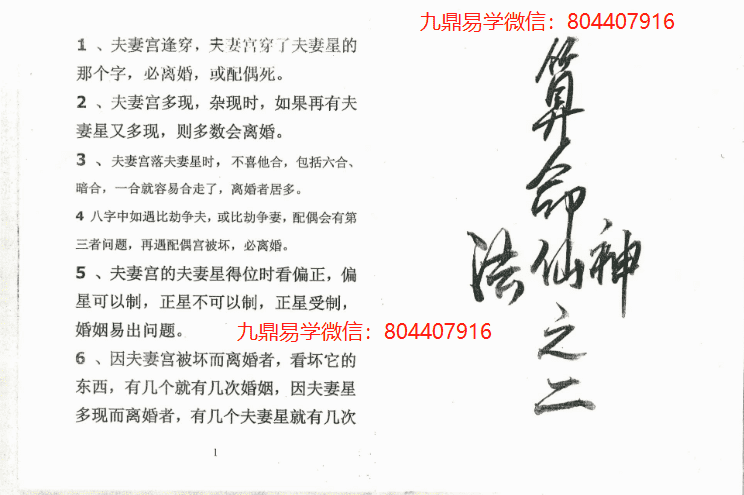 九鼎易学微信：804407916
1 、夫妻宫逢穿，夫妻宫穿了夫妻星的
那个字，必离婚，或配偶死。
2 、夫妻宫多现，杂现时，如果再有夫
妻星又多现，则多数会离婚。
3 、夫妻宫落夫妻星时，不喜他合，包括六合、
暗合，一合就容易合走了，离婚者居多。
4 八字中如遇比劫争夫，或比劫争妻，配偶会有第
三者问题，再遇配偶宫被坏，必离婚。
5 、夫妻宫的夫妻星得位时看偏正，偏
星可以制，正星不可以制，正星受制，
婚姻易出问题。
九鼎易学微信：804407916
6 、因夫妻宫被坏而离婚者，看坏它的
东西，有几个就有几次婚姻，因夫妻星
多现而离婚者，有几个夫妻星就有几次
1
算命
神仙法
之二